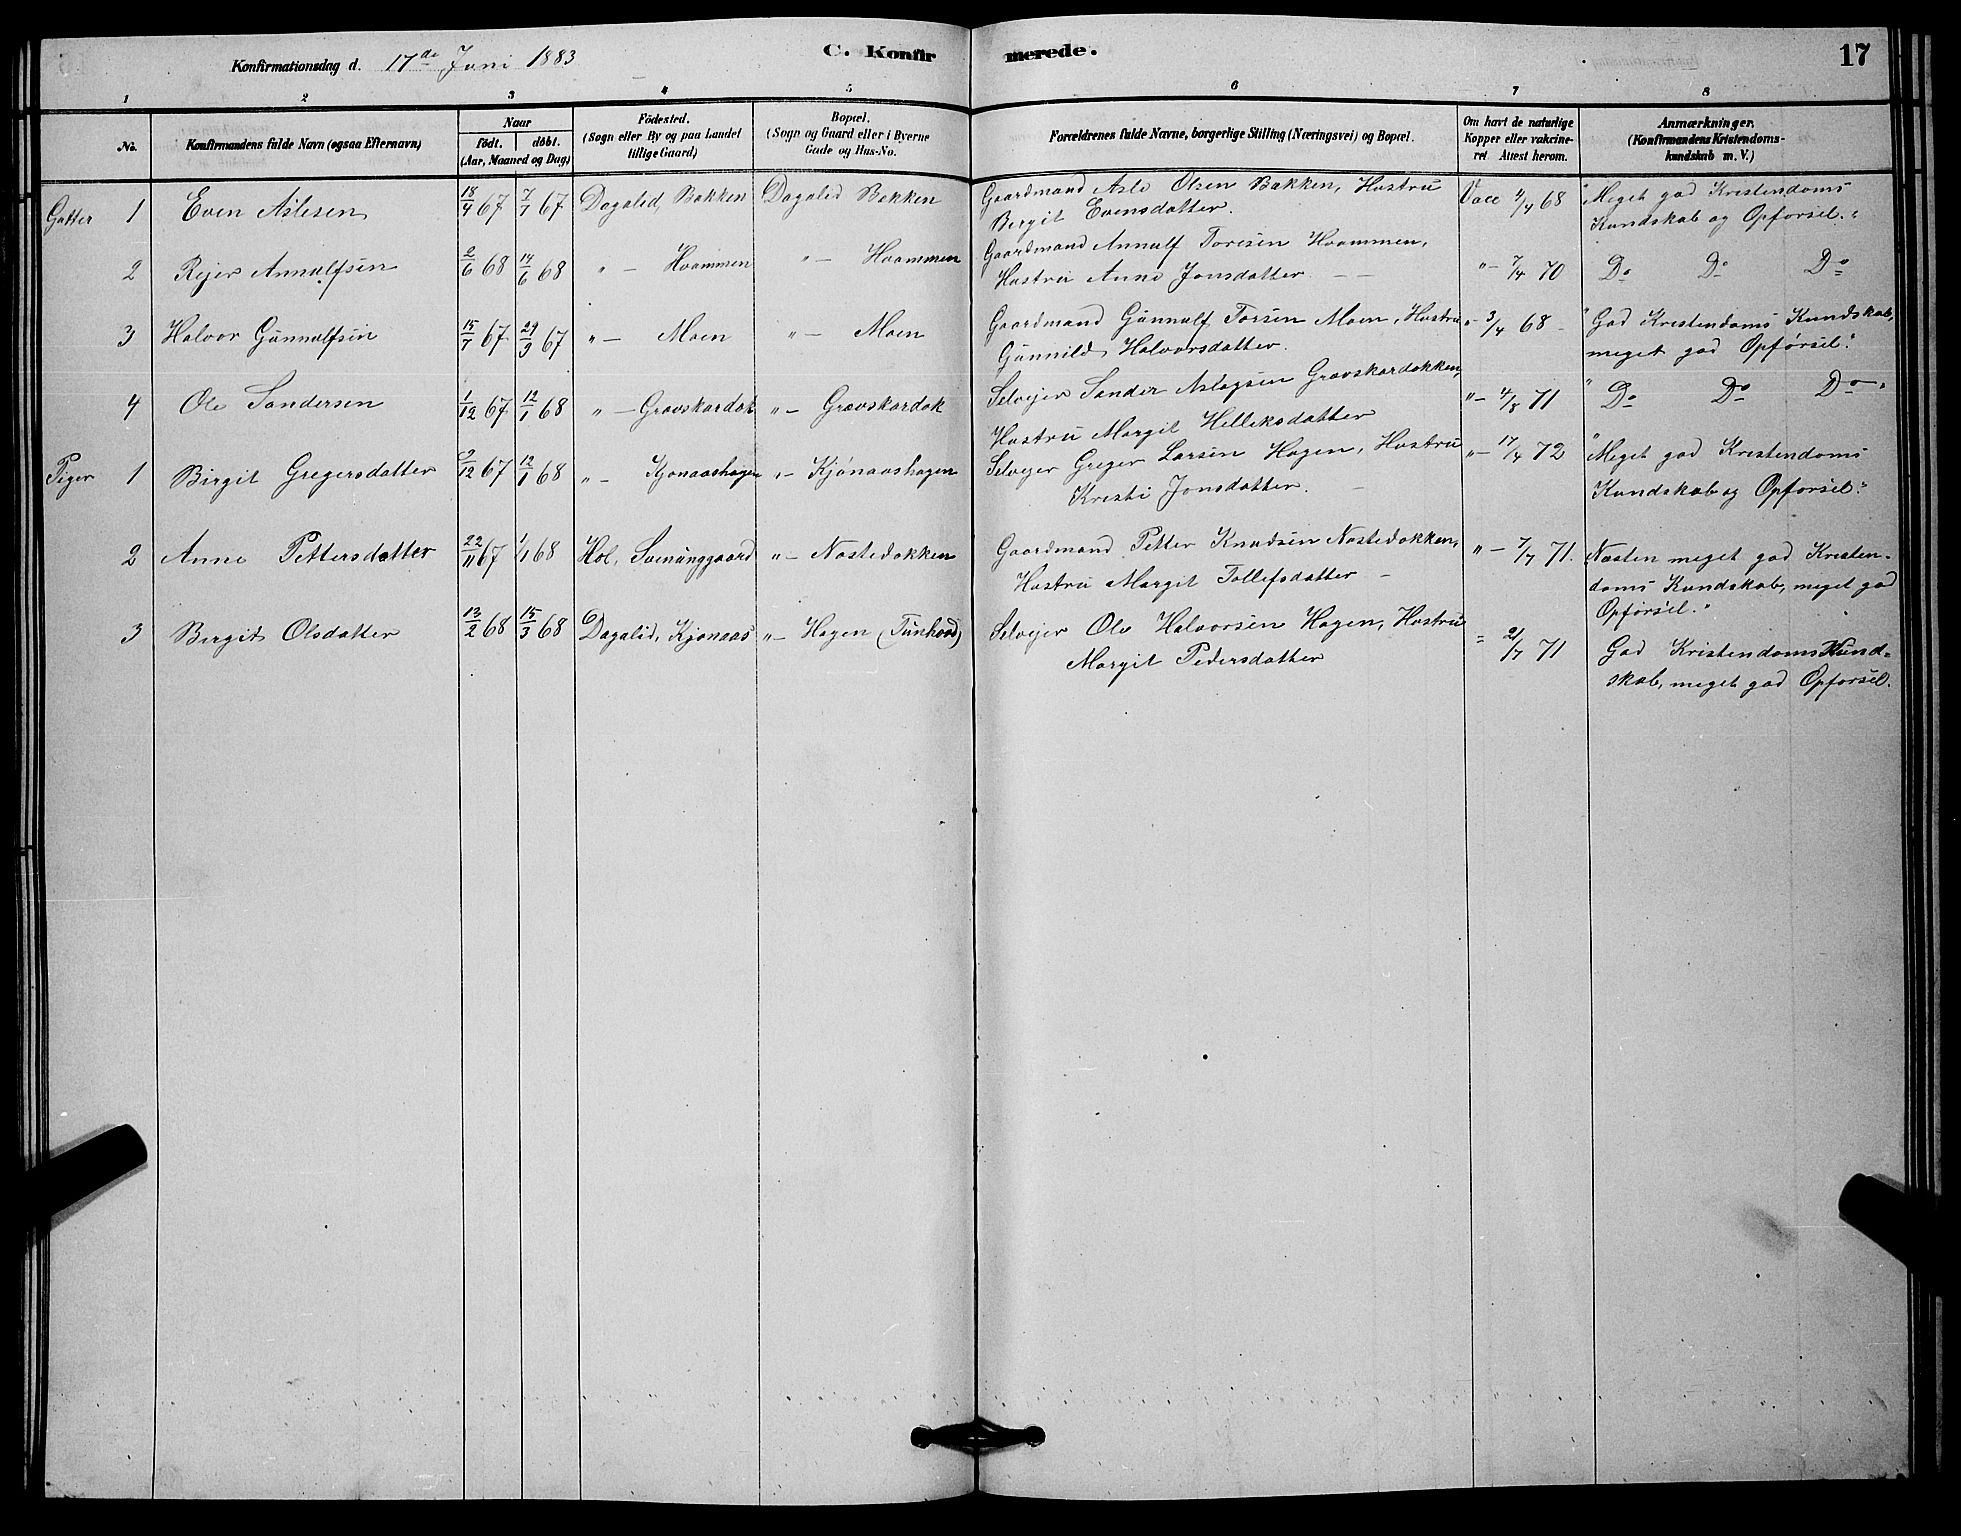 Konfirmationsdag d. 17de Juni 1883
C. Konfirmerede.
17
1 2 3 4 5 6 7 8
No. Konfirmandens fulde Navn (ogsaa Efternavn) Naar født. døbt. (Aar, Maaned og Dag) Fødested. (Sogn eller By og paa Landet tillige Gaard) Bopæl. (Sogn og Gaard eller i Byerne Gade og Hus-No. Forældrenes fulde Navne, borgerlige Stilling (Næringsvei) og Bopæl. Om havt de naturlige Kopper eller vakcineret Attest herom. Anmærkninger. (Konfirmandens Kristendomskundskab m. V.)
Gutter 1 Even Aslesen 18/4 67 7/7 67 Dagalid, Bakken Dagalid Bakken Gaardmand Asle Olsen Bakken, Hustru Vacc 4/4 68 "Meget god Kristendoms
Birgit Evensdatter. Kundskab og Opførsel."
2 Rejer Annulfsen 2/6 68 14/6 68 " — Hvammen " — Hvammen Gaardmand Annulf Toresen Hvammen,
Hustru Anne Jonsdatter — — " — 7/4 70 Do Do Do
3 Halvor Gunnulfsen 15/7 67 29/9 67 " — Moen " — Moen Gaardmand Gunnulf Torsen Moen, Hustru " 3/4 68 - "God Kristendoms Kundskab,
Gunnild Halvorsdatter. meget god Opførsel."
4 Ole Sandersen 1/12 67 12/1 68 " — Gravskardok " — Gravskardok Selvejer Sander Aslagsen Gravskardokken, " — 4/8 71 " Do Do Do — "
Hustru Margit Helleksdatter
Piger 1 Birgit Gregersdatter 9/12 67 12/1 68 " — Kjønaashagen " — Kjønaashagen Selvejer Greger Larsen Hagen, Hustru " — 17/4 72 "Meget god Kristendoms
Kristi Jonsdatter. — Kundskab og Opførsel."
2 Anne Pettersdatter 22/11 67 1/1 68 Hol, Sveinunggaard " — Nastedokken Gaardmand Petter Knudsen Nastedokken, " — 7/7 71. Næsten meget god Kristen-
Hustru Margit Tollefsdatter — doms Kundskab, meget god
Opførsel."
3 Birgit Olsdatter 13/2 68 15/3 68 Dagalid, Kjønaas " — Hagen (Tunhovd) Selvejer Ole Halvorsen Hagen, Hustru = 21/7 71 God Kristendoms Kund=
Margit Pedersdatter skab, meget god Opførsel.